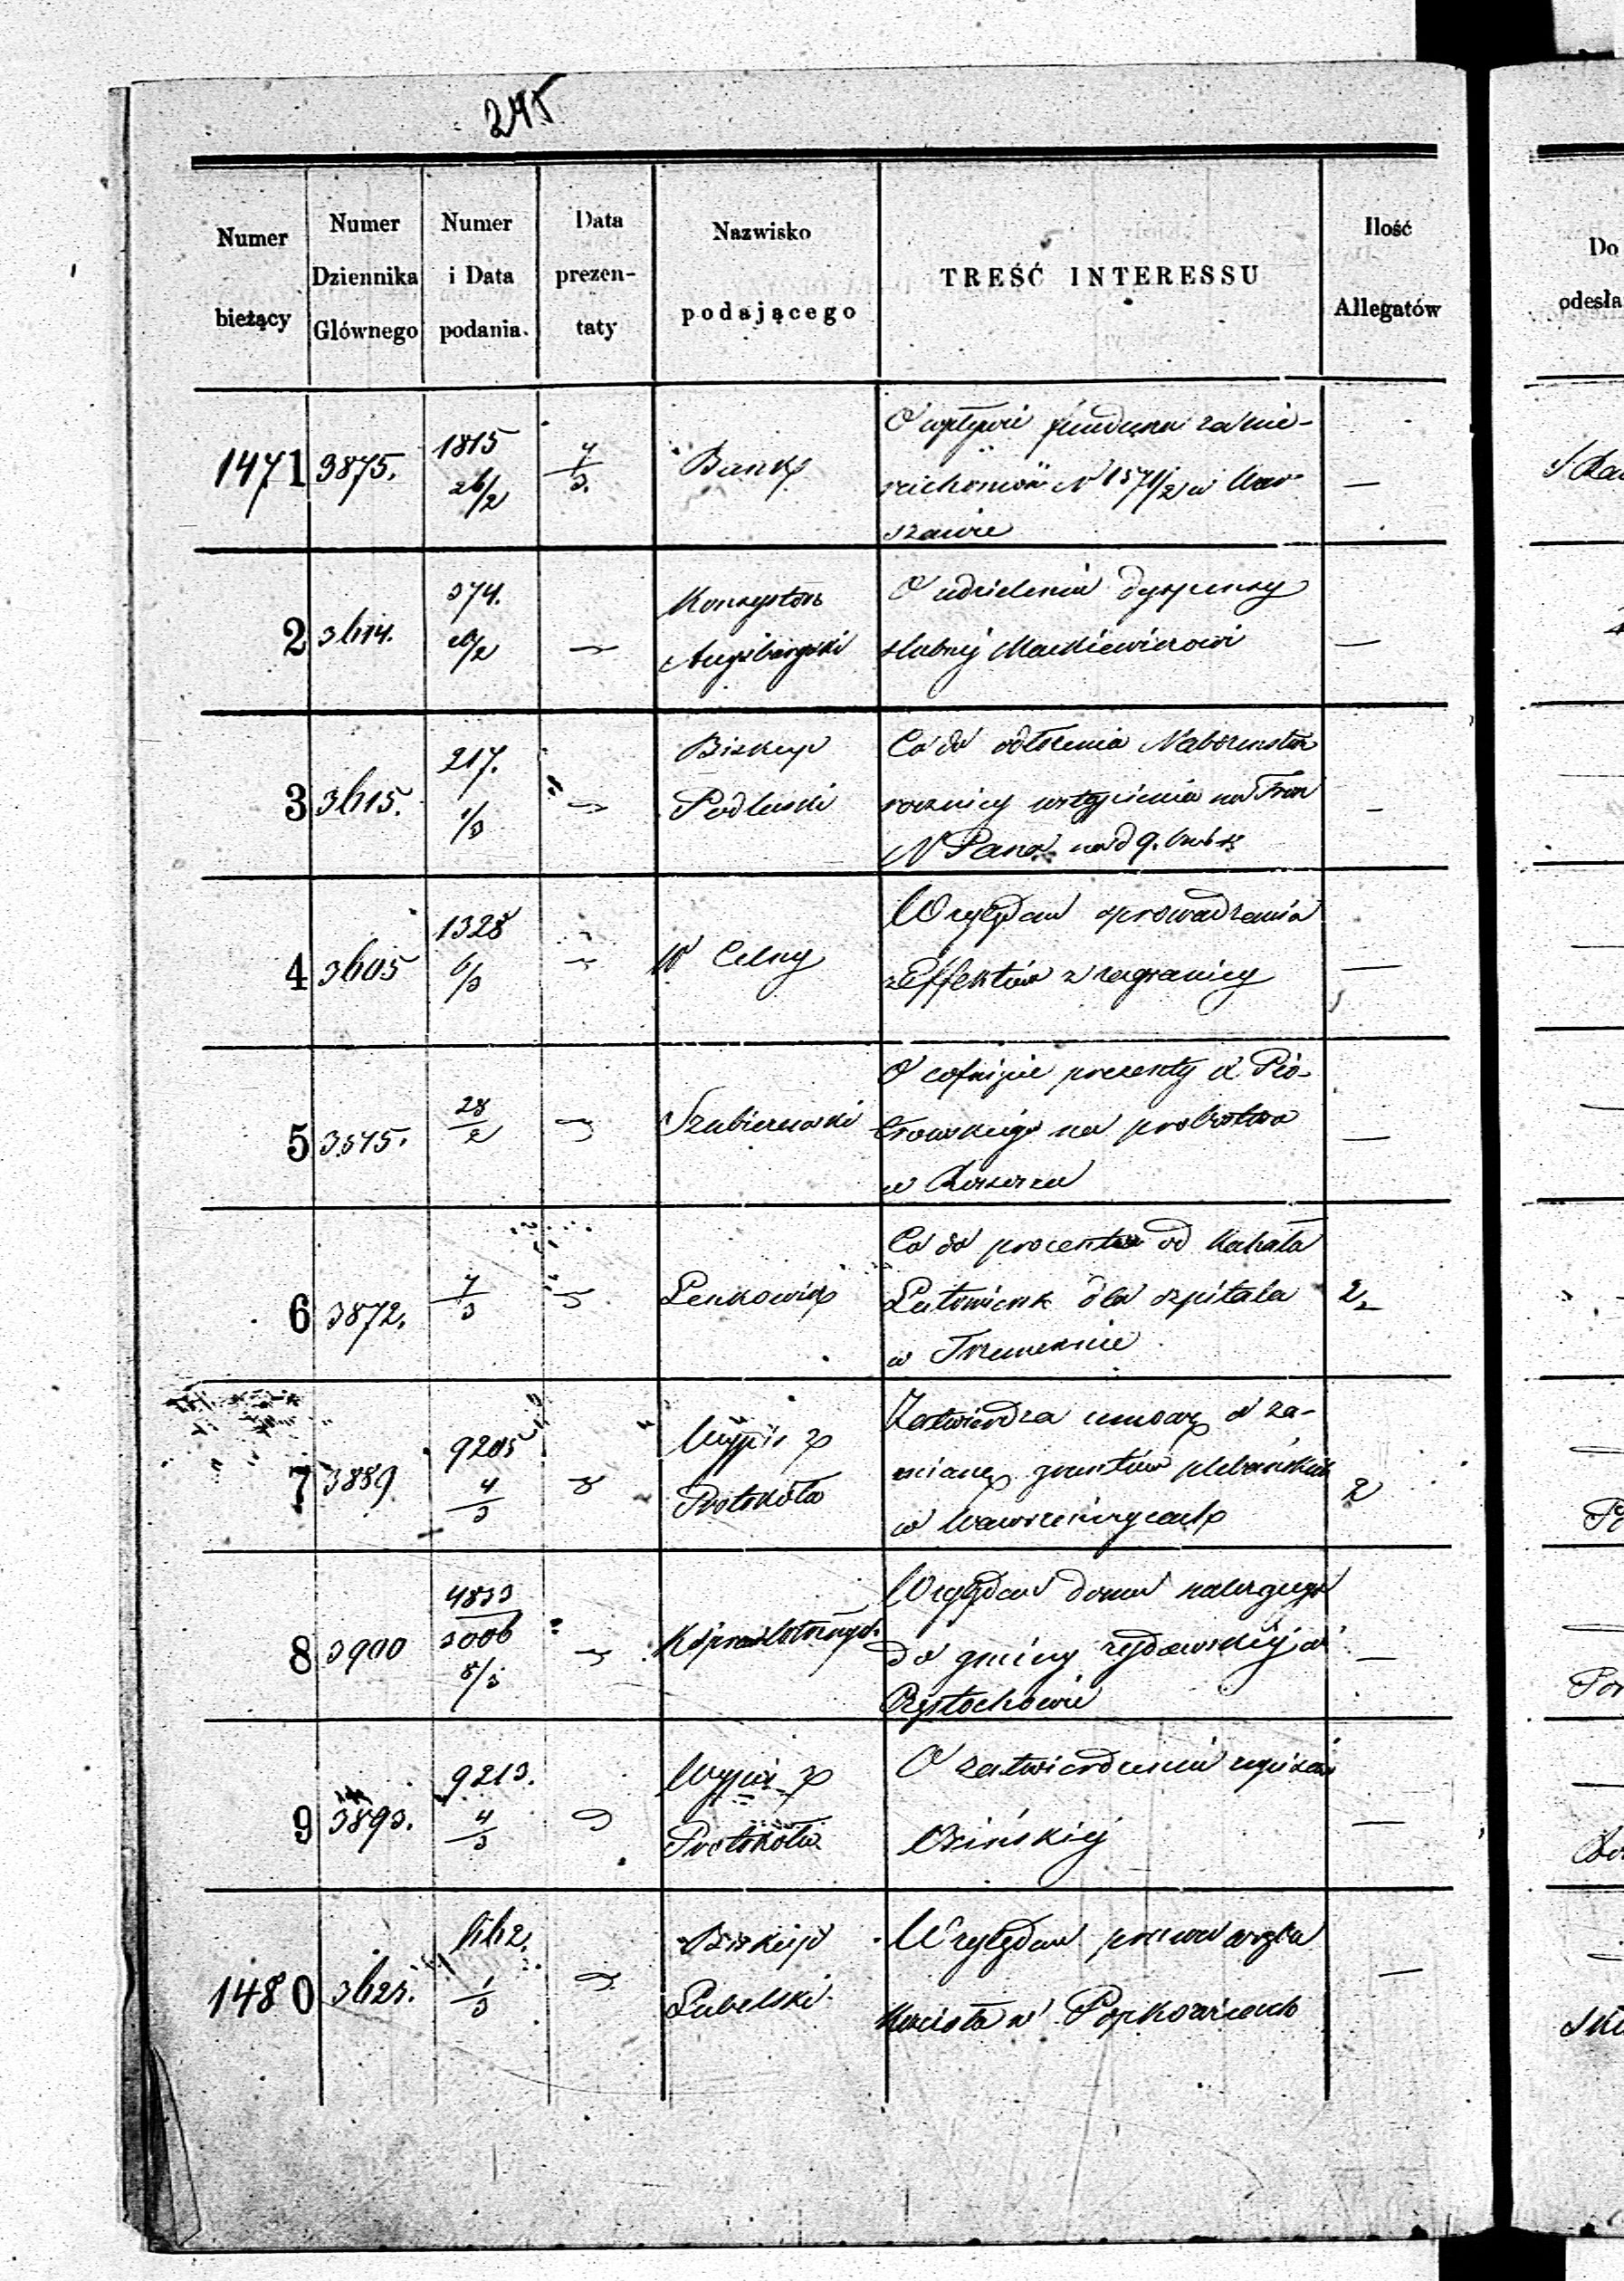 245
Numer bieżący
Numer Dziennika Głównego
Numer i Data podania.
Data prezen- taty
Nazwisko podającego
TREŚĆ INTERESSU
Ilość Allegatów
Do
odesła
1471 3875. 1815 26/2 7/3. Bank
O wpływie funduszu za nie-
ruchomość N 1571/2 w War-
szawie
—
2 3614. 374. 26/2
Konsystorz
Augsburgski
O udzielenie dyspensy
ślubnej Mackiewiczowi
—
3 3615. 217. 1/3
Biskup
Podlaski
Co do odłożenia Nabożeństwa
rocznicy wstąpienia na Tron
N Pana na d 9.
—
4 3605 1328 6/3
W Celny
Względem sprowadzenia
Effektów z zagranicy
—
5 3575. 28/2
O cofnięcie prezenty X Pio-
trowskiego na probostwo
w
—
6 3872. 7/3
Co do procentu od Kahała
Lutomiersk dla szpitala
w Trzemesznie
2
7 3889 9205 4/3
Wypis z
Protokołu
Zatwierdza umowę o za-
mianę gruntów plebańskich
w Wawrzeńczycach
2
8 3900 4833 3006 8/3
Względem domu należącego
do gminy żydowskiej w
Częstochowie
—
9 3893. 9213. 4/3
Wypis z
Protokołu
O zatwierdzenie zapisów
Osińskiej
—
1480 3623. 1/3
Biskup
Lubelski
Względem
Kościoła w Popkowicach
—